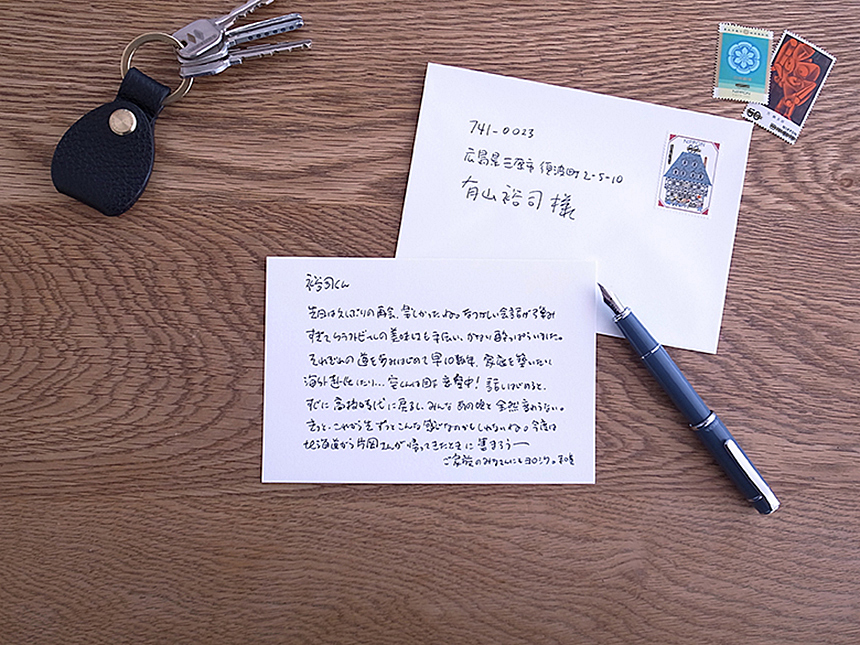 741-0023
広島県三原市須波町2-5-10
有山裕司様
NIPPON
NIPPON
60
裕司くん
先日は久しぶりの再会、楽しかったね。なつかしい会話が弾み
すぎてクラフトビールの美味しさも手伝い、かなり酔っぱらいました。
それぞれの道を歩みはじめて早10数年、家庭を築いたり
海外赴任したり...宏くんは目下 充電中! 話しはじめると、
すぐに高校時代に戻るし、みんなあの頃と全然変わらない。
きっと、これからもずっとこんな感じなのかもしれないね。今度は
北海道から片岡さんが帰ってきたときに集まろうー
ご家族のみなさんにもヨロシク。